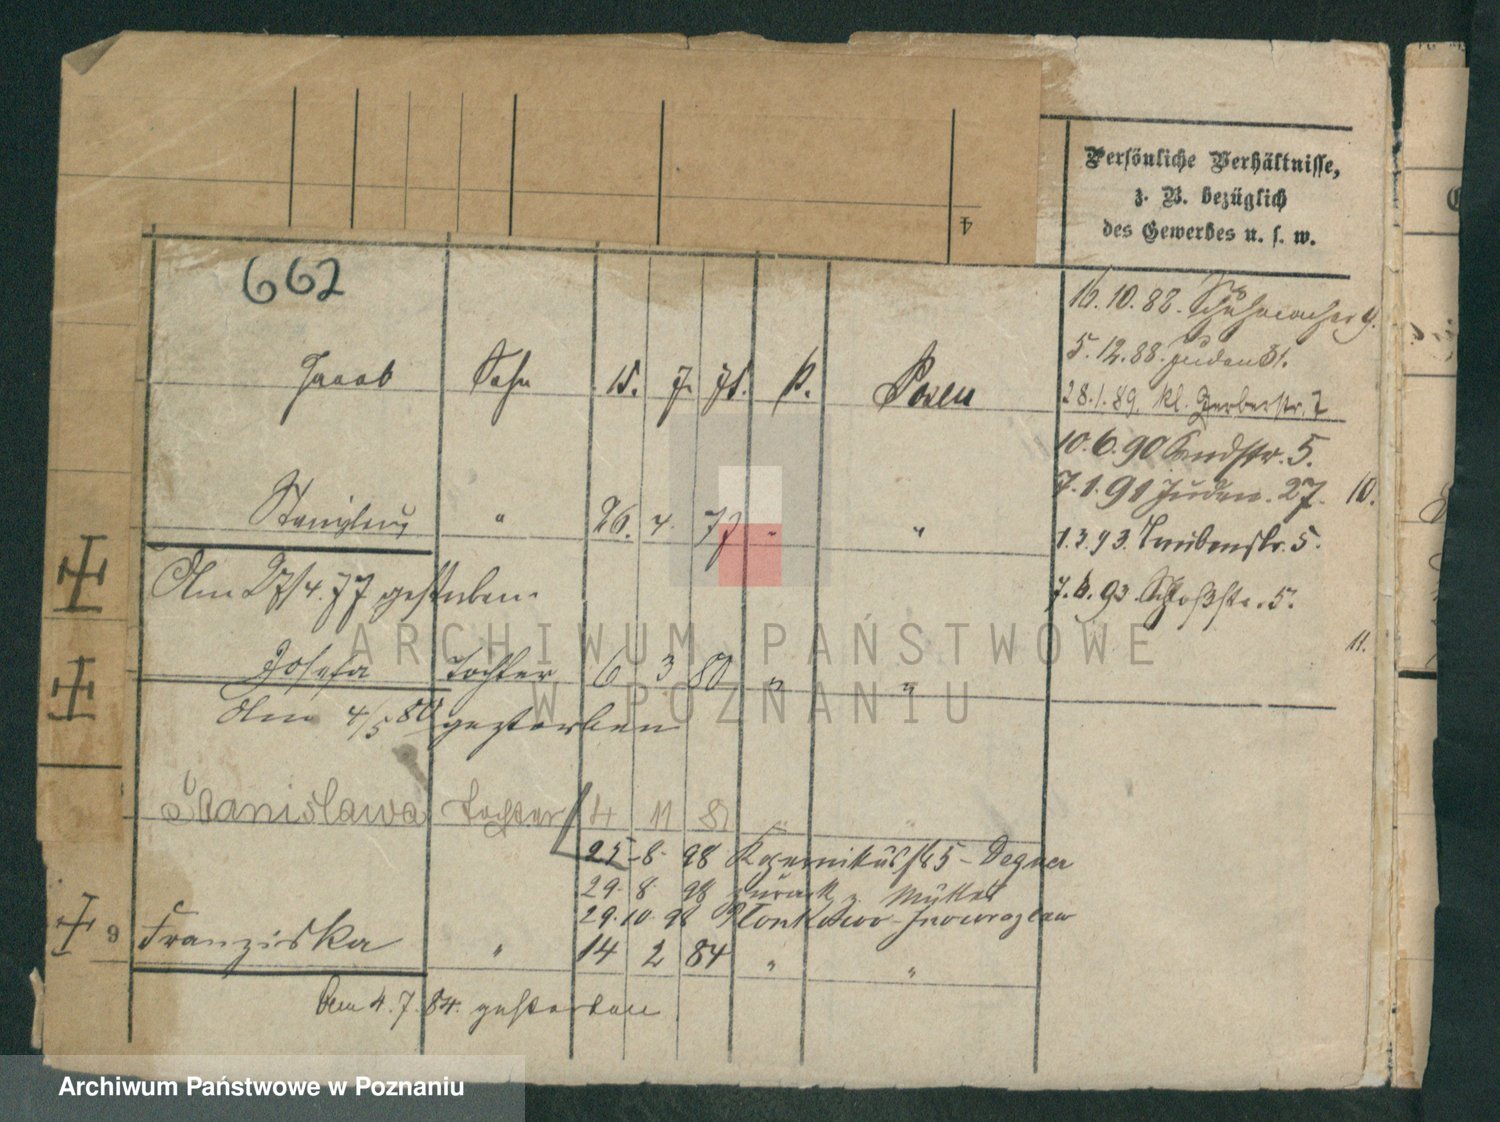 4
Persönliche Verhältnisse,
z. B. bezüglich
des Gewerbes u. s. w.
662
16. 10. 88. Schuhmacher 9.
5. 12. 88. Juden 31.
28. 1. 89. kl. Gerberstr. 7
Jacob Sohn 15. 7. 75. k. Posen
10. 6. 90 Sandstr. 5.
7. 1. 91 Juden. 27. 10.
Stanislaus " 26. 4. 77 " "
1. 3. 93. 5.
7. 6. 93. Schloßstr. 5.
Am 27/4. 77 gestorben.
11.
Josefa Tochter 6 3 80 " "
Am 4/5 80 gestorben
Stanislawa Tochter 4 11 81 " "
25-8-98 Kopernikusstr 5 - Degner
29. 8 98 zurück z. Müller
29. 10. 98 Plonkowo-Inowrazlaw
9 Franziska " 14 2 84 " "
Am 4. 7. 84. gestorben
ARCHIWUM PAŃSTWOWE
W POZNANIU
Archiwum Państwowe w Poznaniu